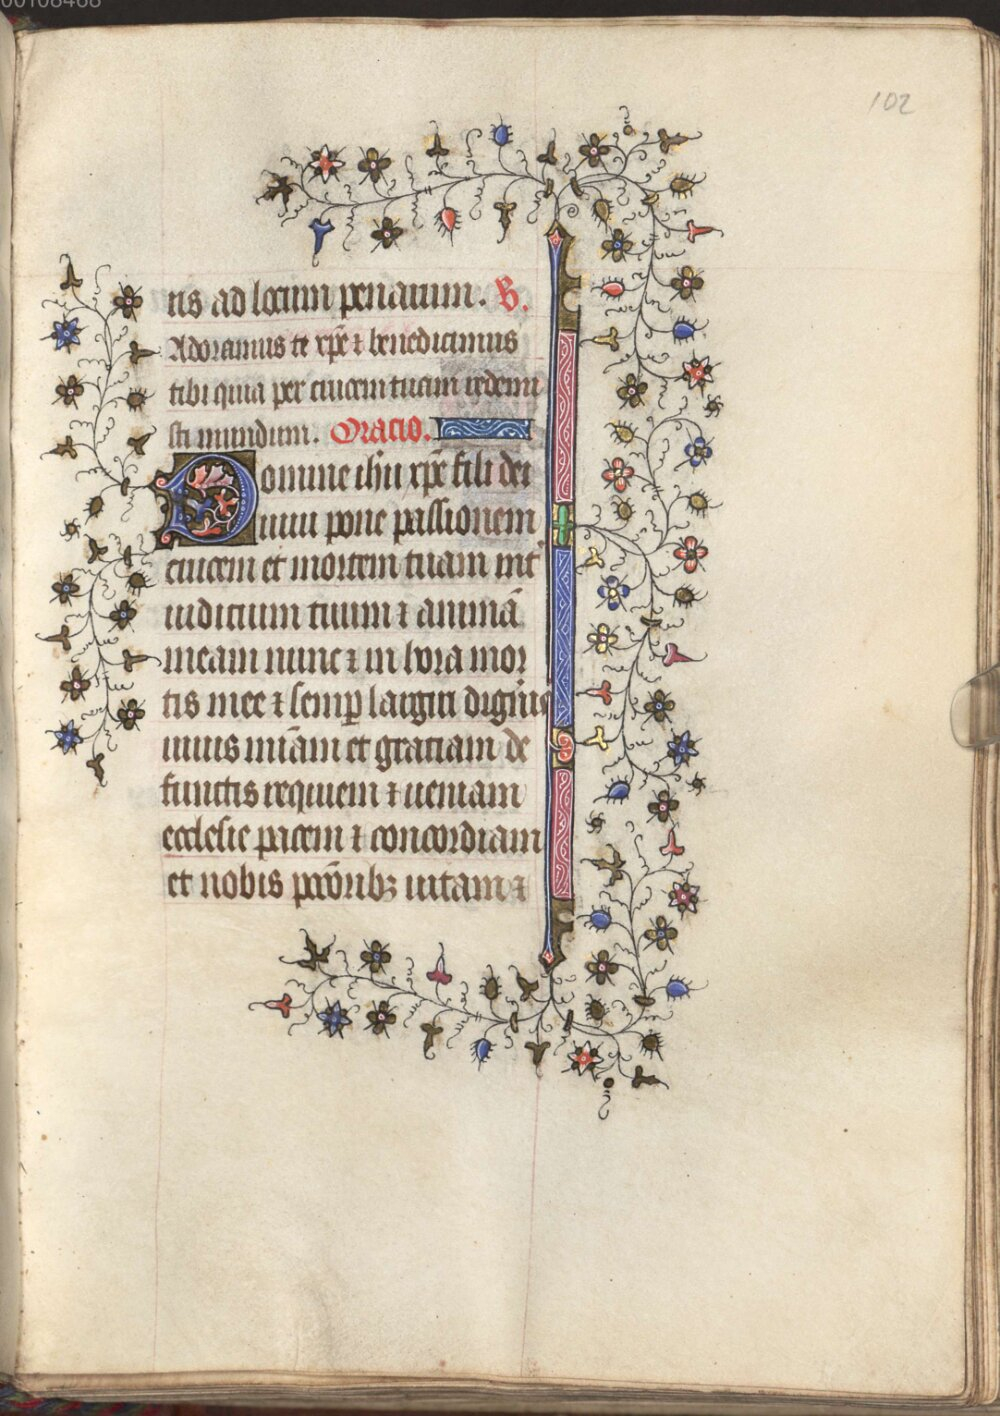 00108468
102
tis ad locum penarum. V.
Adoramus te xp̄e ⁊ benedicimus
tibi quia per crucem tuam redemi
sti mundum. Oracio.
Domine ihū xp̄e fili dei
uiui pone passionem
crucem et mortem tuam int̄
iudicium tuum ⁊ animā
meam nunc ⁊ in hora mor
tis mee ⁊ semp̄ largiri digne
miām et gratiam de
functis requiem ⁊ ueniam
ecclesie pacem ⁊ concordiam
et nobis pctōribꝫ uitam ⁊